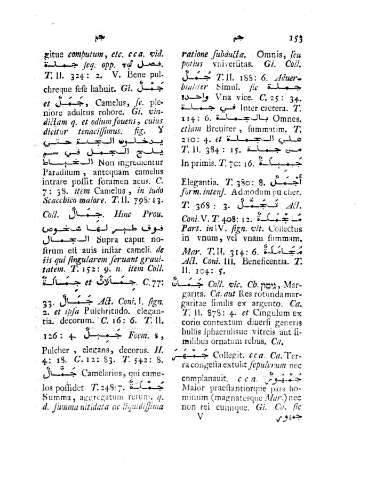 جم
جم
153
gitue computum, etc. cca. vid.
فصل seq. opp. جملة
T. II. 324: 2. V. Bene pul-
chreque sese habuit. Gl. Coll.
et جمل, Camelus, sc. ple-
niore adultus robore. Gl. vin-
dictam q. et odium fouens, cuius
dicitur tenacissimus. fig. Y
يدخلون الجنة حتى
يلج الجمل في سم
الخياط Non ingredientur
Paradisum, antequam camelus
intrare possit foramen acus. C.
7: 38. item Camelus, in ludo
Scacchico maiore. T. II. 798: 13.
Coll. Hinc Prou.
Supra caput no-
strum est auis instar cameli. de
iis qui singularem seruant graui-
tatem. T. 152: 9. n. item Coll.
جمالة et جمالات C. 77:
33. جمال Act. Coni. I. sign.
2. et ipsa Pulchritudo, elegan-
tia, decorum. C. 16: 6. T. II.
126: 4. جميل Form. 8,
Pulcher, elegans, decorus. H.
4: 18. C. 12: 83. T. 542: 8.
جمال Camelarius, qui came-
los possidet T. 248: 7. جملة
Summa, aggregatum rerum, q.
d. summa nitidata ac liquidissima
ratione subducta. Omnis, seu
potius vniuersitas. Gl. Coll.
جمل T. II. 188: 6. Aduer-
bialiter Simul. sic جملة
واحدة Vna vice. C. 25: 34.
Inter cetera. T.
114: 6. بالجملة Omnes.
etiam Breuiter, summatim. T.
210: 4. et
T. II. 384: 15. من جملة
In primis. T. 70: 16.
Elegantia. T. 380: 8. أجمل
form. intens. Admodum pulcher.
T. 368: 3. تجمل Act.
Coni. V. T. 408: 12.
Part. in IV. sign. vit. Collectus
in vnum, vel vnam summam.
Mar. T. II. 314: 6. مجاملة
Act. Coni. III. Beneficentia. T.
II. 104: 5.
جمان Coll. vic. Cb. Mar-
garita. Ca. aut Res rotunda mar-
garitae similis ex argento. Ca.
T. II. 878: 4. et Cingulum ex
corio contextum diuersi generis
bullis sphaerulisue vitreis aut si-
milibus ornatum rebus. Ca.
جمهر Collegit. cca. Ca. Ter-
ra congesta extulit sepulcrum nec
complanauit. ccn. جمهور
Maior praestantiorque pars ho-
minum (magnatesque Mar.) nec
non rei cuiusque. Gl. Co. sic
V
جمهور